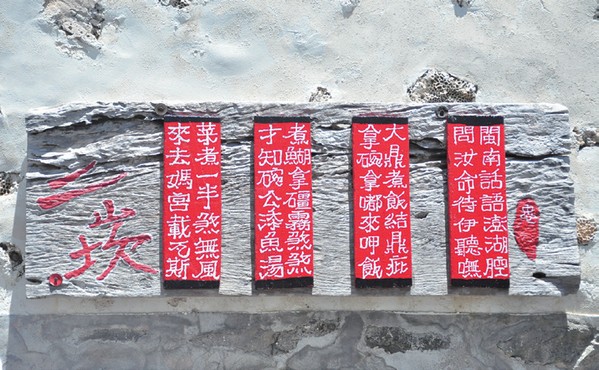 閩南話語澎湖腔
問汝命待伊聽嘸
大鼎煮飯結鼎疕
拿碗拿嘟來呷飯
煮餬拿礓霧煞煞
才知碗公添魚湯
菜煮一半煞無風
來去媽宮載瓦斯
二崁